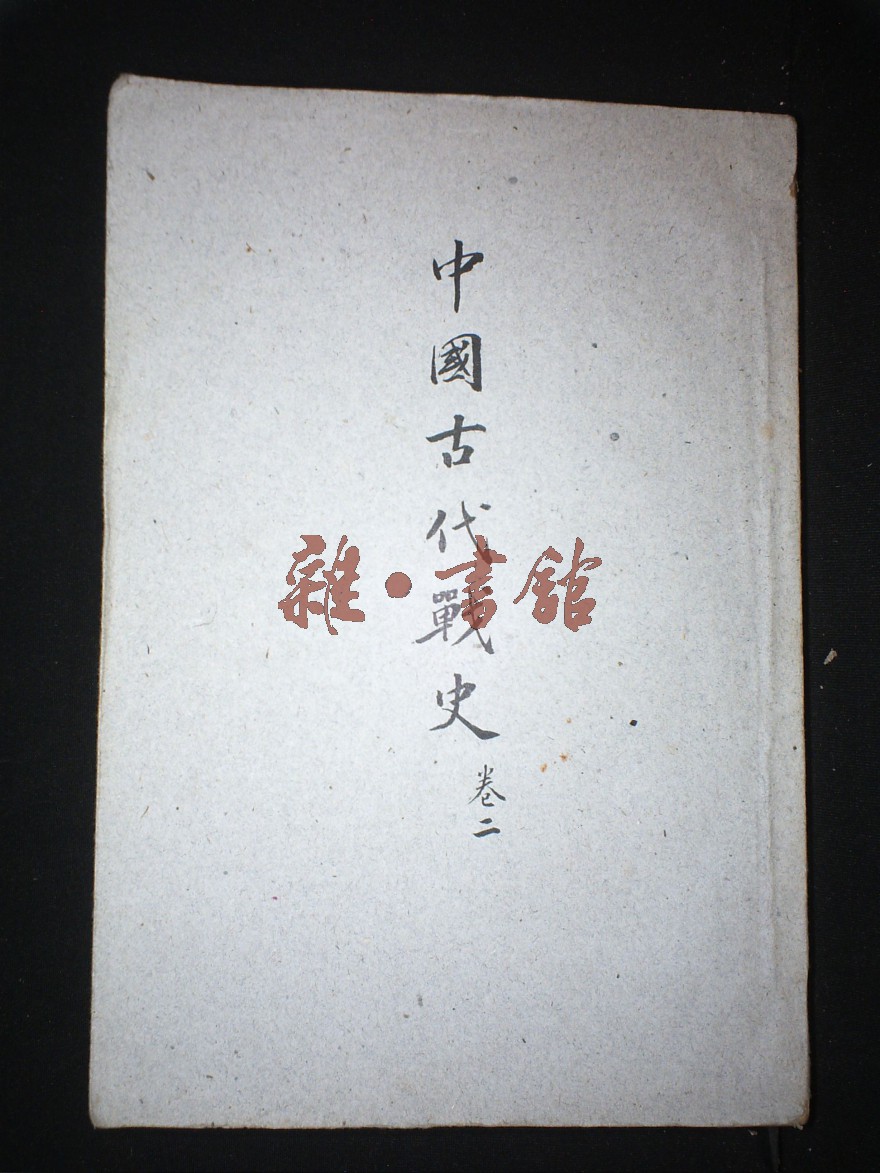 中國古代戰史
卷二
雜·書舘